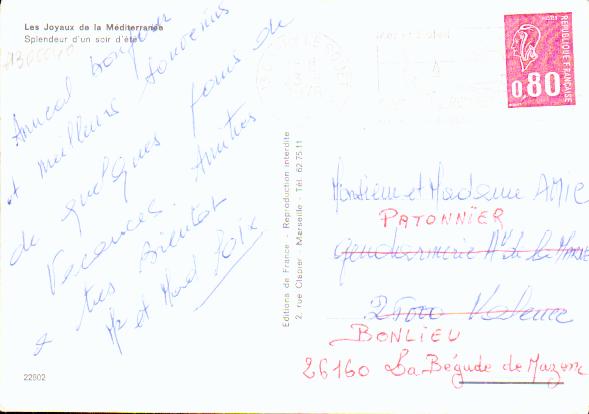 Les Joyaux de la Méditerranée
Splendeur d'un soir d'été
Amical bonjour
et meilleurs souvenirs
de quelques jours de
Vacances. Amitiés
a tres Bientot
Mr et Mme
22602
Editions de France - Reproduction interdite
2, rue Clapier Marseille - Tél. 62.75.11
POSTES
REPUBLIQUE FRANÇAISE
0,80
Monsieur et Madame AMIC
PATONNIER
Gendarmerie de la
26000 Valence
BONLIEU
26160 La Bégude de Mazenc